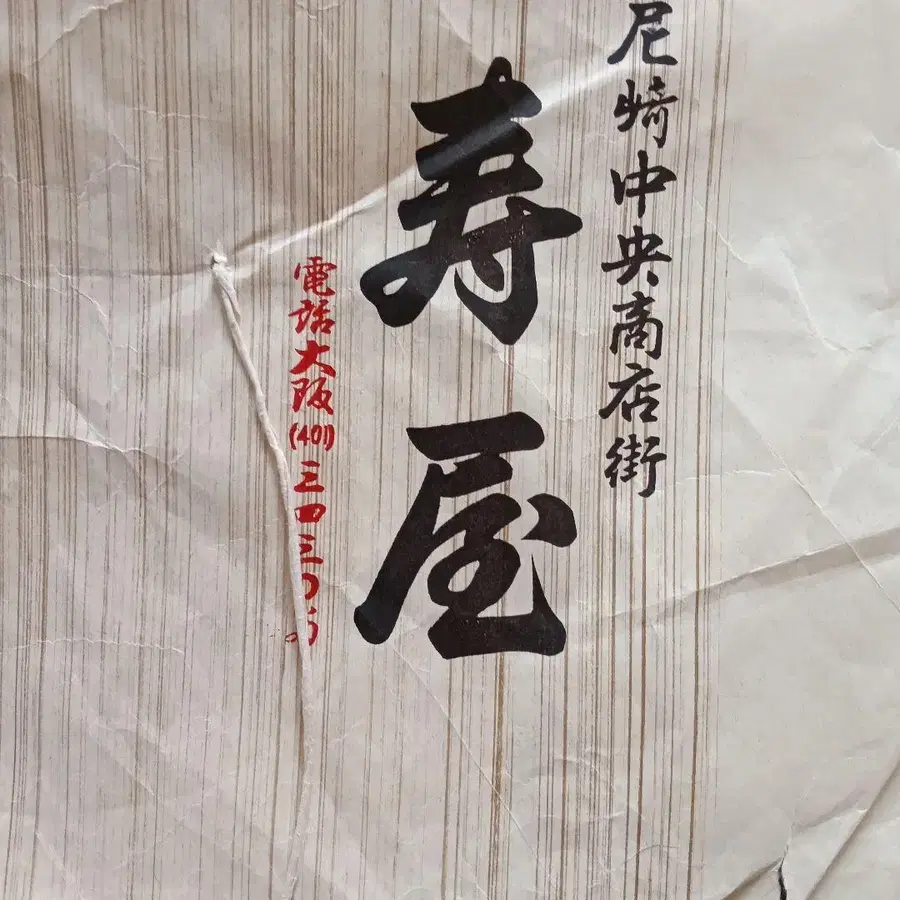 尼崎中央商店街
寿屋
電話大阪(401)三四三〇